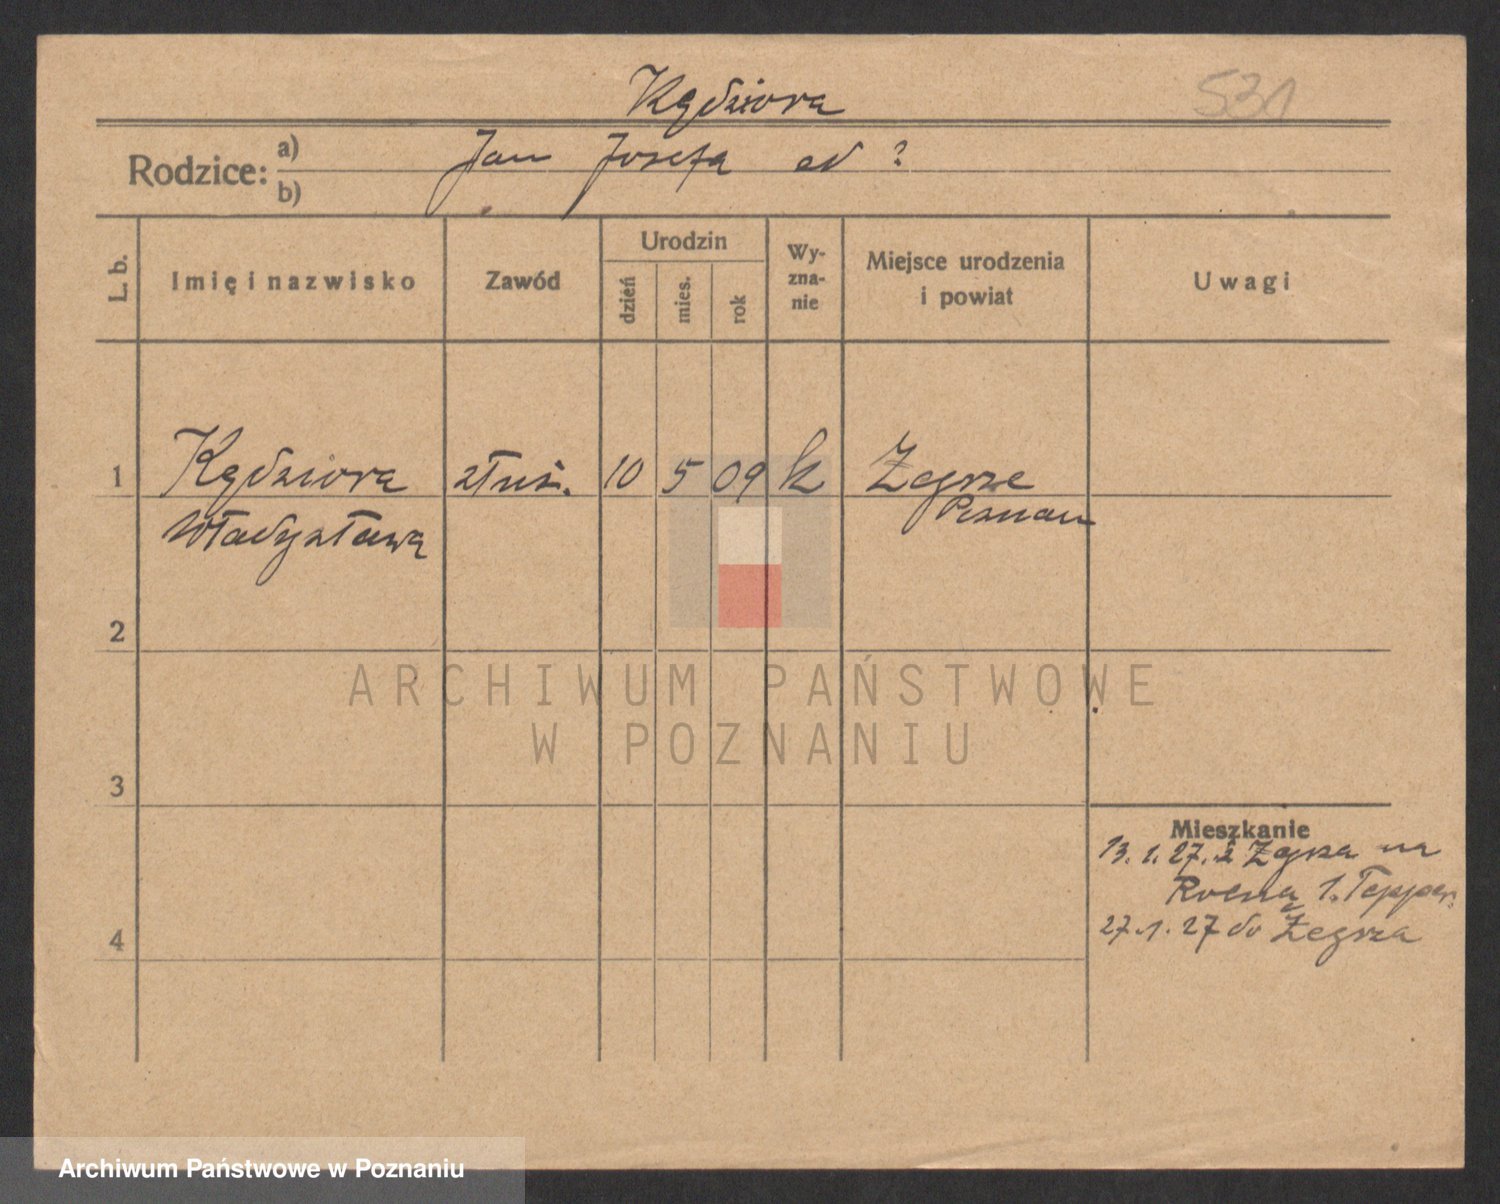 Kędziora
531
Rodzice: a) Jan Józefa od ?
b)
L. b.
Imię i nazwisko
Zawód
Urodzin
dzień
mies.
rok
Wy-
zna-
nie
Miejsce urodzenia
i powiat
Uwagi
1 Kędziora służ. 10 5 09 k Żegrze
Władysława Poznań
2
ARCHIWUM PAŃSTWOWE
W POZNANIU
3
Mieszkanie
13. 1. 27. z Żegrza na
Rolną 1. Tepper.
4 27. 1. 27 do Żegrza
Archiwum Państwowe w Poznaniu